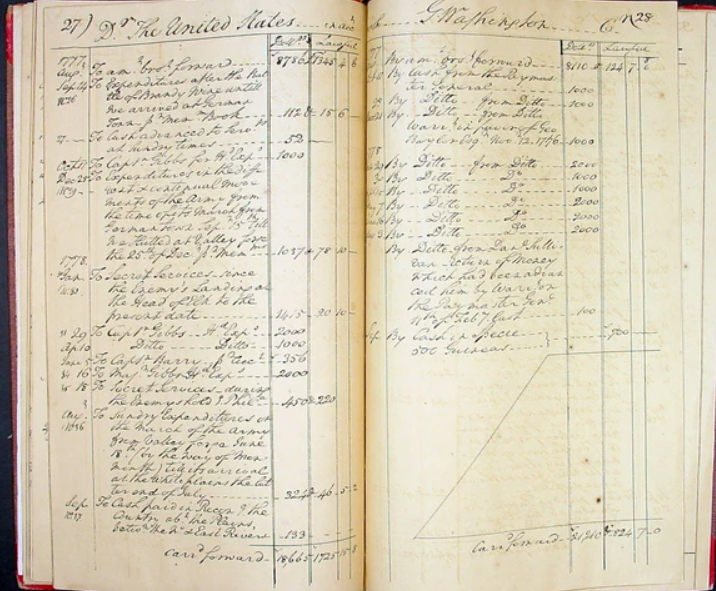 27) Dr. The United States
in acct.
1777 Dollrs Lawful
Aug. To amt. brot. forward 8786 1345 4 6
Sep. 14 To Expenditures after the Bat
tle of Brandy Wine untill
we arrived at German
Town pr. Memm. Book 112 15 6
To Cash advanced to
at sundry times 52
Oct. To Captn. Gibbs for Hd. Exps. 1000
Dec 25 To Expenditures in the diff
erent & continual Move
ments of the Army from
the time of its March from
Germantown Sep. 15th Till
we Hutted at Valley forge
the 25th of Dec. pr. Memm. 1037 78 10
1778
Jan. To Secret Services since
the Enemy's Landing at
the Head of Elk to the
present date 1415 20 10
29 To Captn. Gibbs Hd. Exps. 2000
Ap. 10 Ditto Ditto 1000
5 To Captn. Barry pr. acct. 356
16 To Majr. Gibbs Hd. Exps. 2000
18 To Secret Services during
the Enemys hold of Phila. 450 220
Aug. To Sundry Expenditures on
the March of the Army
from Valley forge June
18th (by the way of Mon
mouth) till its arrival
at the White plains the lat
ter end of July 324 46 5
Sep. To Cash paid in Recong. the
Country abt. the Plains,
betwn. the No. & East Rivers 133
carrd. forward 18665 1725 15 8
G. Washington Cr. 28
Dollrs Lawful
By amt. brot. forward 8110 124 7
By Cash from the Paymas
ter General 1000
By Ditto from Ditto 1000
By Ditto from Ditto
Warrt. in favor of Geo
Baylor Esq. Nov. 12. 1776 1000
By Ditto from Ditto 2000
By Ditto Do. 1000
By Ditto Do. 1000
By Ditto Do. 2000
By Ditto Do. 2000
By Ditto Do. 2000
By Ditto from
return of Money
which had been advan
ced him by Warrt. on
the Pay master Genl.
11th of Feby. last 100
Sep. By Cash in Specie
500 Guineas
Carrd. forward 824 7 0